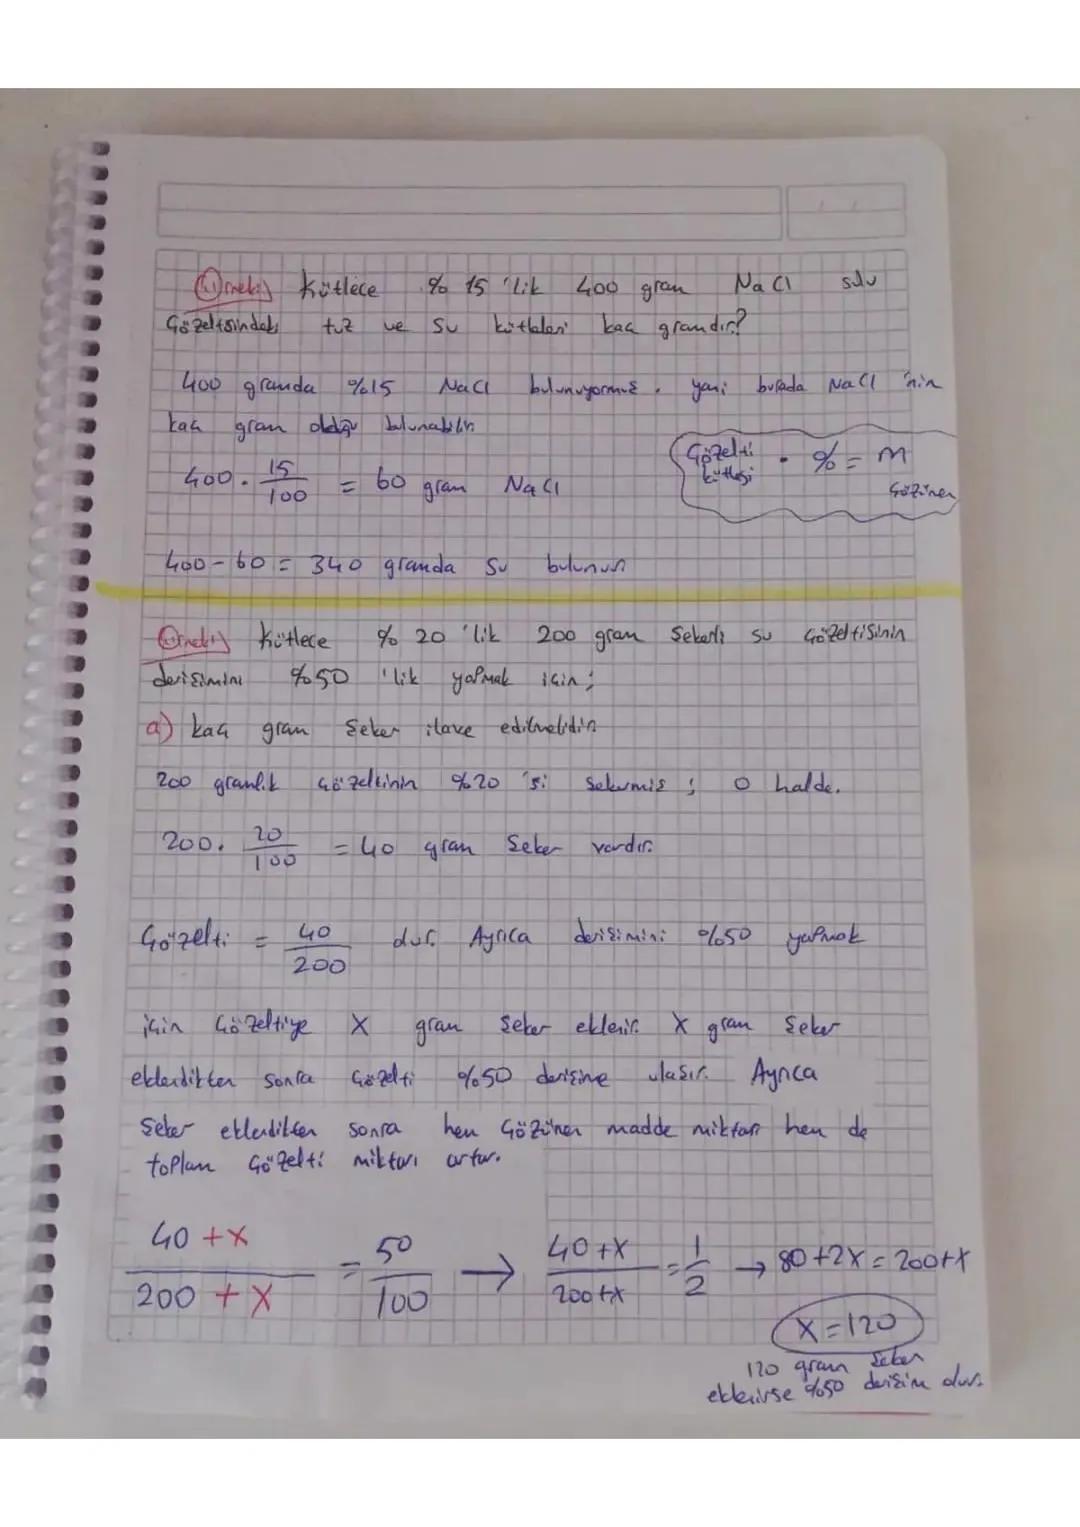 Örnek) Kütlece % 15 'lik 400 gram NaCl sulu
Çözeltsindeki tuz ve su kütleleri kaç gramdır?
400 gramda %15 NaCl bulunuyormuş. yani burada NaCl 'nin
kaç gram olduğu bulunabilir.
Çözelti kütlesi . % = m çözünen
400 . 15/100 = 60 gram NaCl
400 - 60 = 340 gramda su bulunur.
Örnek) Kütlece % 20 'lik 200 gram şekerli su çözeltisinin
derişimini %50 'lik yapmak için;
a) kaç gram şeker ilave edilmelidir.
200 gramlık çözeltinin %20 'si şekermiş ; O halde.
200 . 20/100 = 40 gram şeker vardır.
Çözelti = 40/200 dur. Ayrıca derişimini %50 yapmak
için çözeltiye X gram şeker eklenir. X gram şeker
eklendikten sonra çözelti %50 derişime ulaşır. Ayrıca
şeker eklendikten sonra hem çözünen madde miktarı hem de
toplam çözelti miktarı artar.
40 + x / 200 + x = 50/100 → 40 + x / 200 + x = 1/2 → 80 + 2x = 200 + x
X = 120
120 gram şeker
eklenirse %50 derişim olur.